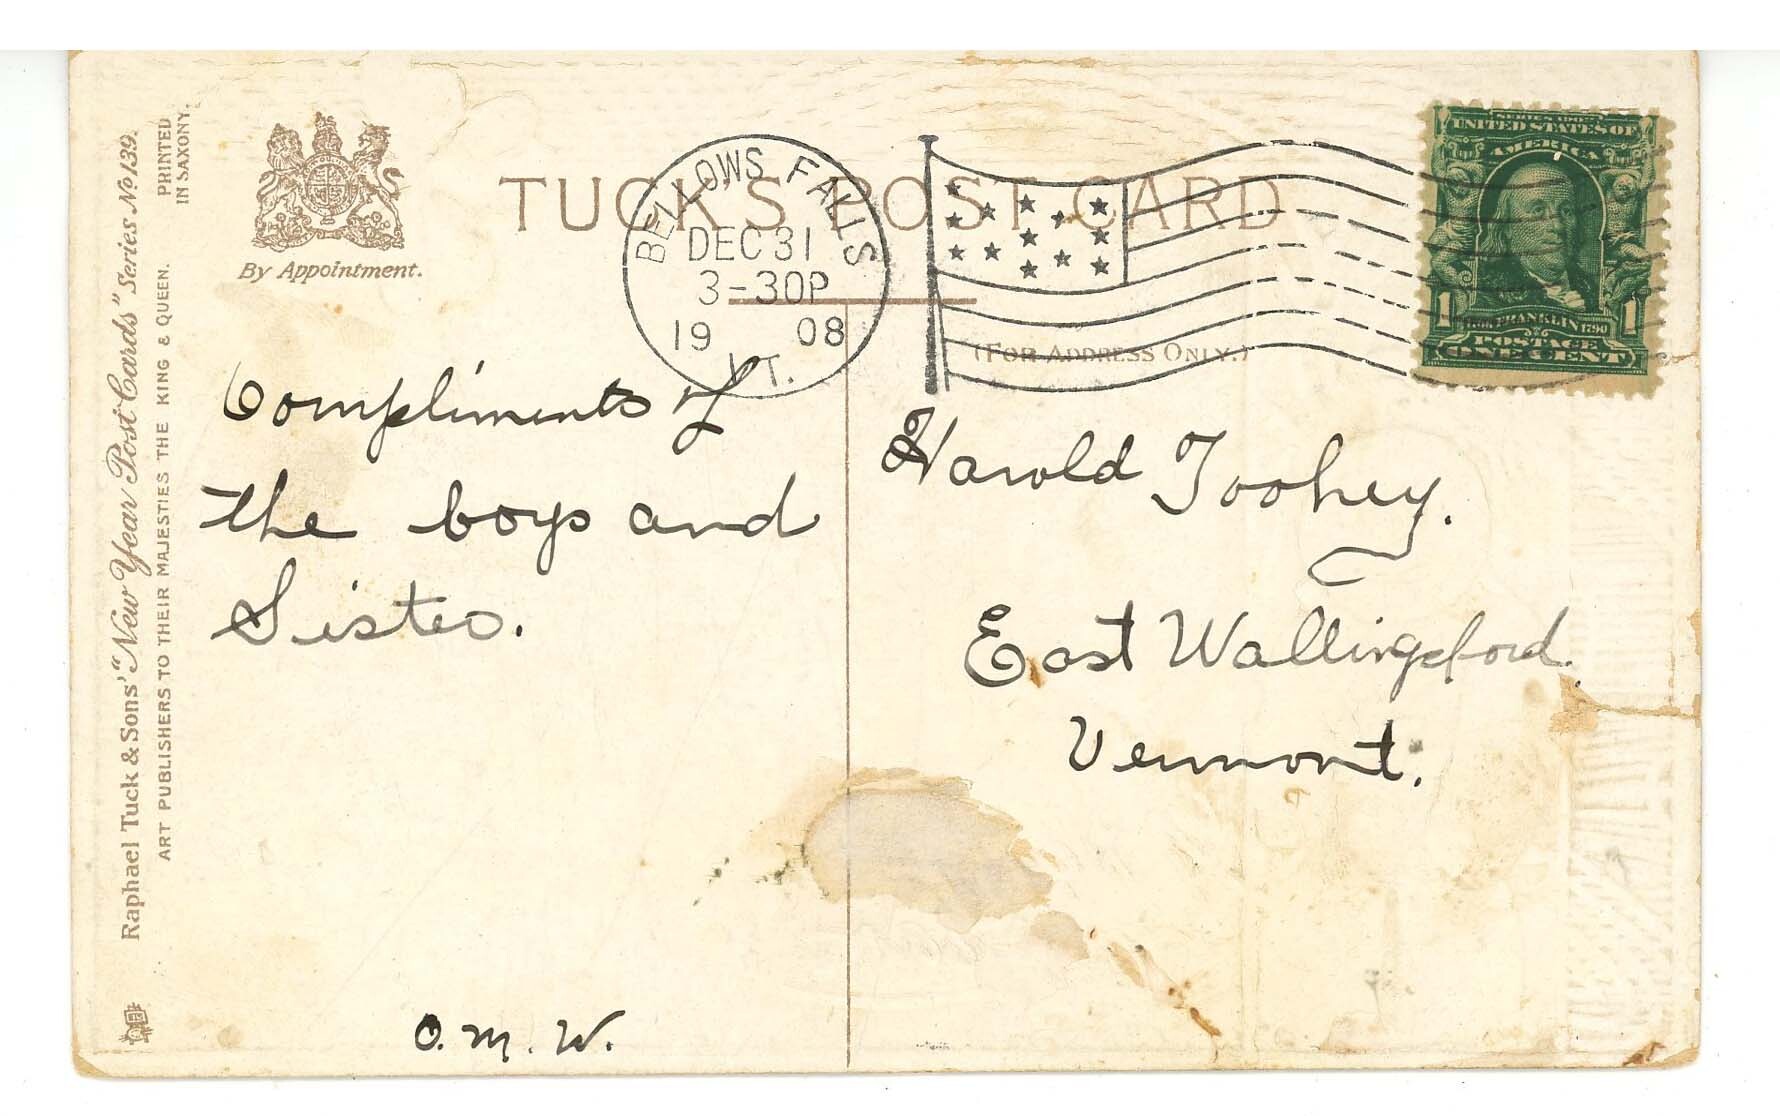 Raphael Tuck & Sons' "New Year Post Cards" Series No. 139.
ART PUBLISHERS TO THEIR MAJESTIES THE KING & QUEEN.
PRINTED
IN SAXONY.
By Appointment.
TUCK'S POST CARD
BELLOWS FALLS
DEC 31
3-30P
19 08
VT.
(FOR ADDRESS ONLY.)
SERIES 1902
UNITED STATES OF
AMERICA
FRANKLIN 1790
1 1
POSTAGE
ONE CENT
Compliments of
the boys and
Sister.
O. M. W.
Harold Toohey.
East Wallingford.
Vermont.